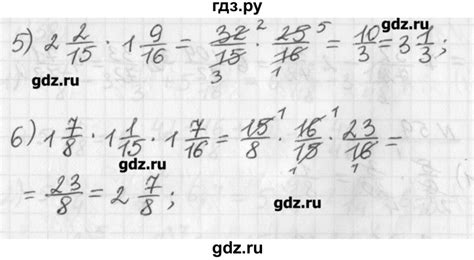 гдз.ру
5) 2 2/15 · 1 9/16 = 32²/15₃ · 25⁵/16₁ = 10/3 = 3 1/3;
gdz.ru gdz.ru
6) 1 7/8 · 1 1/15 · 1 7/16 = 15¹/8 · 16¹/15₁ · 23/16₁ =
= 23/8 = 2 7/8;
gdz.ru gdz.ru